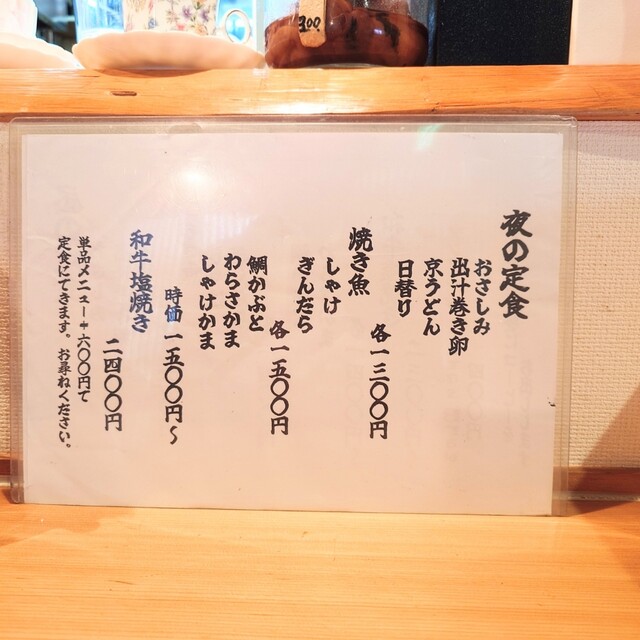 夜の定食
おさしみ
出汁巻き卵
京うどん
日替り
各一三〇〇円
焼き魚
しゃけ
ぎんだら
各一五〇〇円
鯛かぶと
わらさかま
しゃけかま
時価一五〇〇円～
和牛塩焼き
二四〇〇円
単品メニュー+六〇〇円で
定食にできます。お尋ねください。